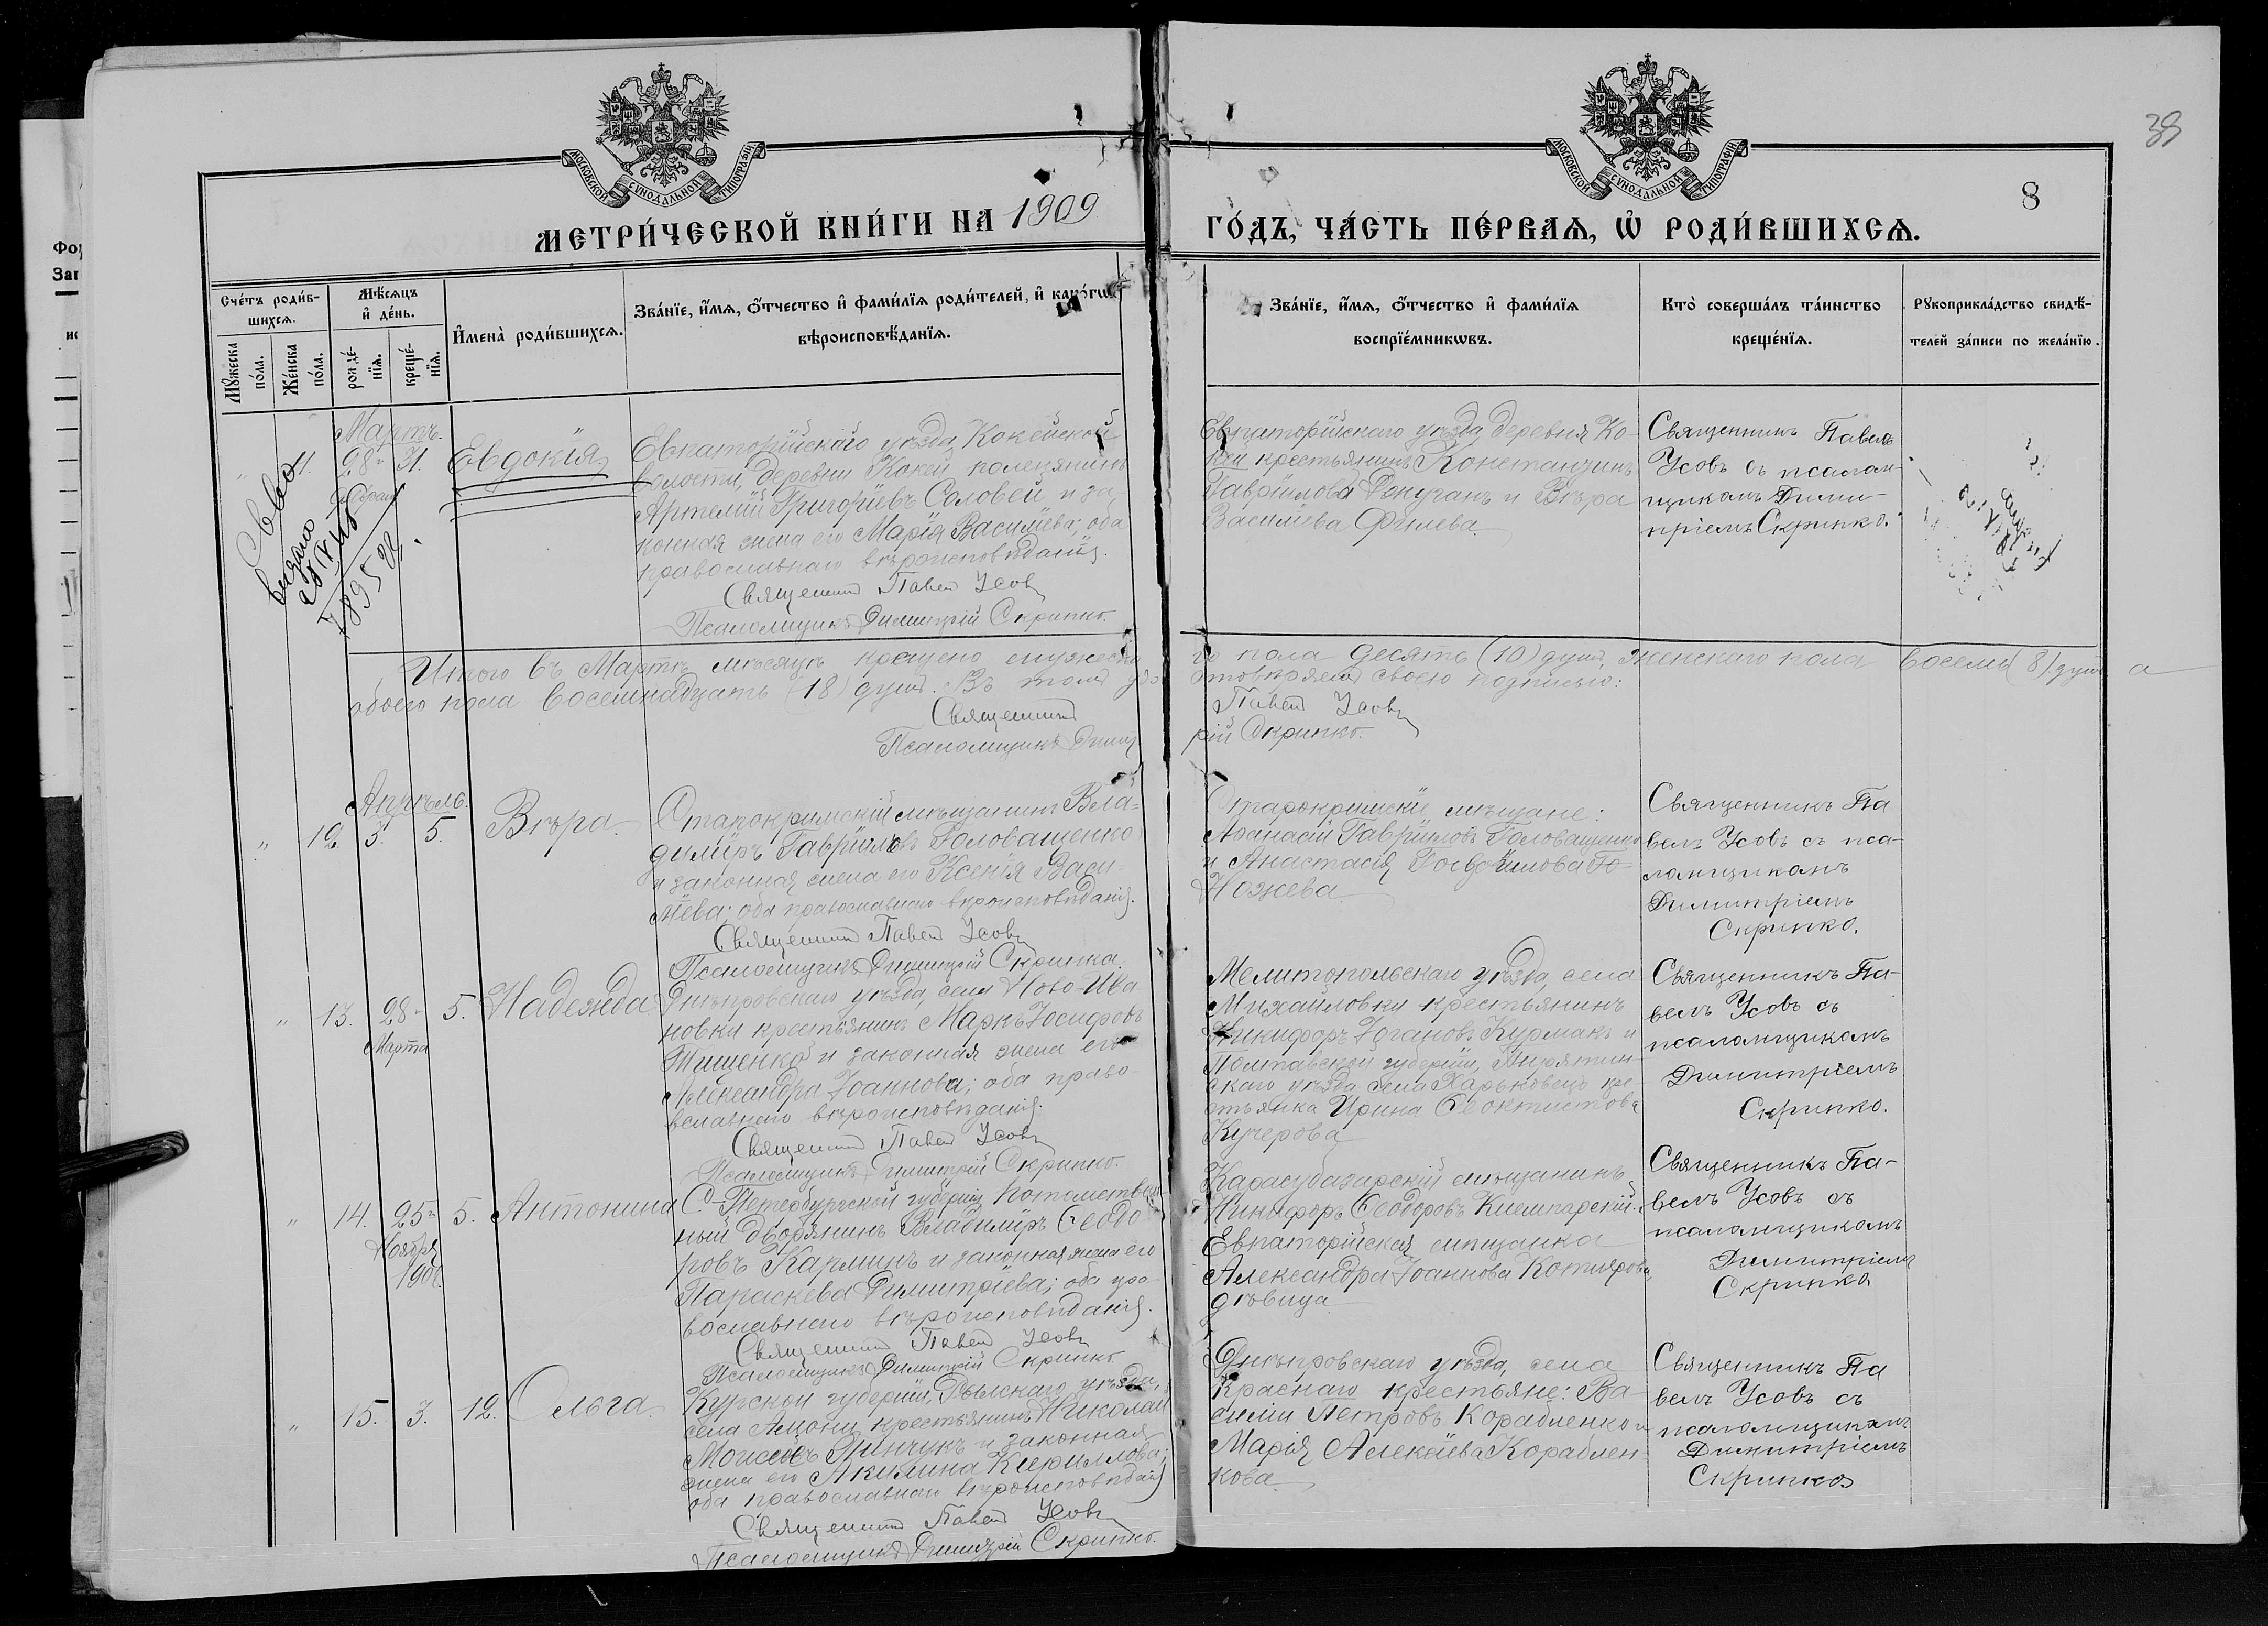 МОСКОВСКОЙ СѴНОДАЛЬНОЙ ТИПОГРАФІИ
МОСКОВСКОЙ СѴНОДАЛЬНОЙ ТИПОГРАФІИ
39
8
МЕТРИ́ЧЕСКОЙ КНИ́ГИ НА 1909
ГО́ДЪ, ЧА́СТЬ ПЕ́РВАѦ, Ѡ҆ РОДИ́ВШИХСѦ.
Сче́тъ роди́в-
шихсѧ.
Мꙋ́жеска по́ла.
Же́нска по́ла.
Мѣ́сѧцъ
и҆ де́нь.
рожде́-
нїѧ.
креще́-
нїѧ.
И҆мена̀ роди́вшихсѧ.
Зва́нїе, и҆́мѧ, ѻ҆́тчество и҆ фами́лїѧ роди́телей, и҆ како́гѡ
вѣроисповѣ́данїѧ.
Зва́нїе, и҆́мѧ, ѻ҆́тчество и҆ фами́лїѧ
воспрїе́мникѡвъ.
Кто̀ соверша́лъ та́инство
креще́нїѧ.
Рꙋкоприкла́дство свидѣ́-
телей за́писи по жела́нїю.
Мартъ.
11. 28го 31. Евдокія
Февраля
Евпаторійскаго уѣзда, Кокейской
волости, деревни Кокей поселянинъ
Артемій Григоріевъ Соловей и за-
конная жена его Марія Василіева; оба
православнаго вѣроисповѣданія.
Священникъ Павелъ Усовъ
Псаломщикъ Димитрій Скрипко.
Евпаторійскаго уѣзда, деревня Ко-
кей крестьянинъ Константинъ
Гавріиловъ и Вѣра
Василіева Филева
Священникъ Павелъ
Усовъ съ псалом-
щикомъ Дими-
тріемъ Скрипко.
Итого въ Мартѣ мѣсяцѣ крещено мужеска-
го пола десять (10) душъ, женскаго пола восемь (8) душъ а
обоего пола восемнадцать (18) душъ. Въ томъ удо-
стовѣряемъ своею подписью:
Священникъ Павелъ Усовъ
Псаломщикъ Димит-
рій Скрипко.
Апрѣль.
12. 3. 5. Вѣра.
Старокримскій мѣщанинъ Вла-
димиръ Гавріиловъ Головащенко
и законная жена его Ксенія Васи-
ліева; оба православнаго вѣроисповѣданія.
Священникъ Павелъ Усовъ
Псаломщикъ Димитрій Скрипко.
Старокримскіе мѣщане:
Афанасій Гавріиловъ Головащенко
и Анастасія
Ножева
Священникъ Па
велъ Усовъ съ пса-
ломщикомъ
Димитріемъ
Скрипко.
13. 28го 5. Надежда
Марта
Днѣпровскаго уѣзда, села Ново-Ива
новки крестьянинъ Маркъ Іосифовъ
Тищенко и законная жена его
Александра Іоаннова; оба право-
славнаго вѣроисповѣданія.
Священникъ Павелъ Усовъ
Псаломщикъ Димитрій Скрипко.
Мелитопольскаго уѣзда, села
Михайловки крестьянинъ
Никифоръ Іоановъ Курмакъ и
Полтавской губерніи, Пирятин
скаго уѣзда села Харьковецъ кре-
стьянка Ирина Ѳеоктистова
Кучерова
Священникъ Па-
велъ Усовъ съ
псаломщикомъ
Димитріемъ
Скрипко.
14. 25го 5. Антонина
Ноября
1908
С.-Петербургской губерніи, потомствен-
ный дворянинъ Владимиръ Ѳеодо
ровъ Карминъ и законная жена его
Параскева Димитріева; оба пра-
вославнаго вѣроисповѣданія.
Священникъ Павелъ Усовъ
Псаломщикъ Димитрій Скрипко.
Карасубазарскій мѣщанинъ
Никифоръ Ѳеодоровъ
Евпаторійская мѣщанка
Александра Іоаннова Котлярова
дѣвица
Священникъ Па-
велъ Усовъ съ
псаломщикомъ
Димитріемъ
Скрипко
15. 3. 12. Ольга.
Курской губерніи, Рыльскаго уѣзда,
села крестьянинъ Николай
Моисеевъ Гринчукъ и законная
жена его Акилина Кириллова;
оба православнаго вѣроисповѣданія
Священникъ Павелъ Усовъ
Псаломщикъ Димитрій Скрипко.
Днѣпровскаго уѣзда, села
Краснаго крестьяне: Ва-
силій Петровъ Корабленко и
Марія Алексіева Кораблен-
кова.
Священникъ Па
велъ Усовъ съ
псаломщикомъ
Димитріемъ
Скрипко